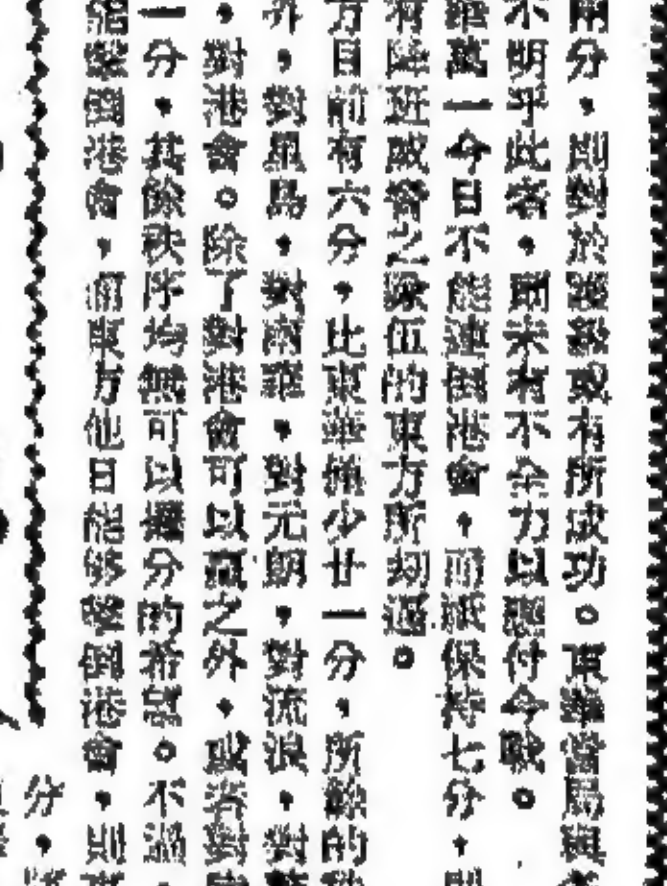 兩分，則對於護級或有所成功。東華當局與
不明乎此者，開未有不全力以應付今戰。
華萬一今日不能連倒港會，而祇保持七分，則
有降班威脅之隊伍的東方所刧過。
方目前有六分，比東華推少廿一分，所餘的
外，對星島，對南華，對元朗，對流浪，對
，對港會。除了對港會可以贏之外，或者對
一分，其餘秩序均無可以攞分的希望。不過
能擊倒港會，而東方他日能够擊倒港會，則東
分，